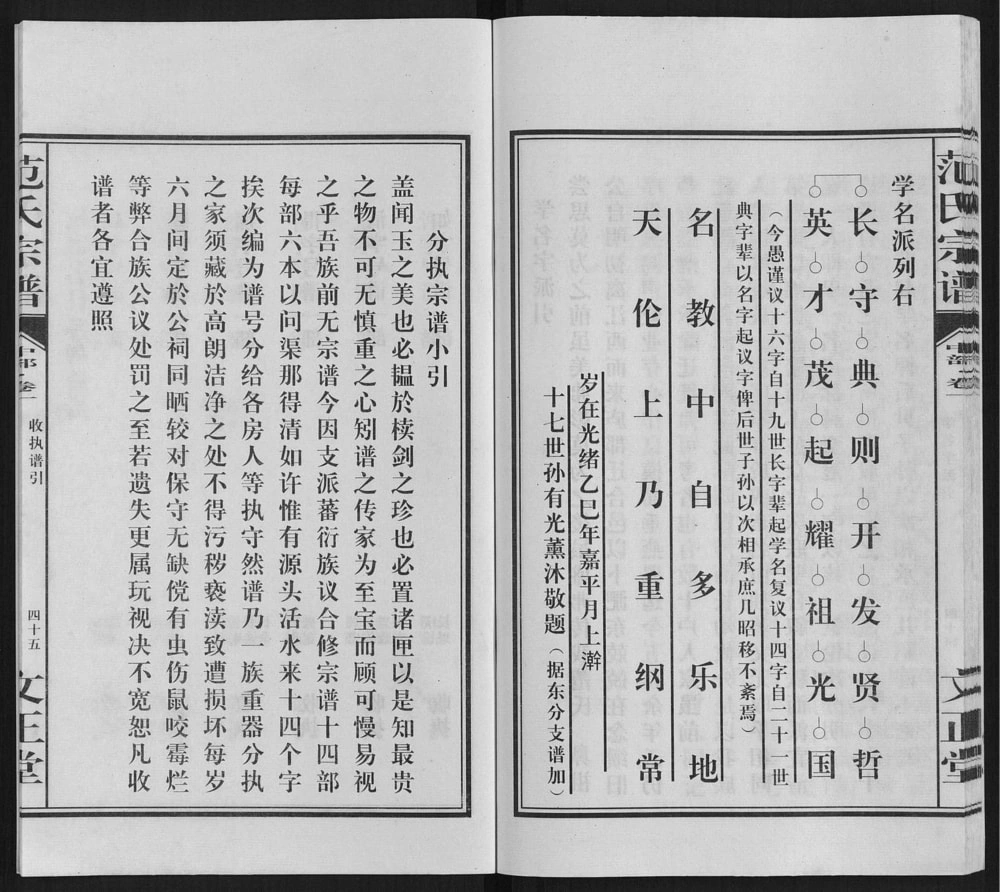 范氏宗谱
宗部卷一
文正堂
学名派列右
长守典则开发贤哲
英才茂起耀祖光国
（今愚谨议十六字自十九世长字辈起学名复议十四字自二十世
典字辈以名字起议字俾后世子孙以次相承庶几昭移不紊焉）
名教中自多乐地
天伦上乃重纲常
岁在光绪乙巳年嘉平月上澣
十七世孙有光薰沐敬题（据东分支谱加）
分执宗谱小引
盖闻玉之美也必韫於椟剑之珍也必置诸匣以是知最贵
之物不可无慎重之心矧谱之传家为至宝而顾可慢易视
之乎吾族前无宗谱今因支派蕃衍族议合修宗谱十四部
每部六本以问渠那得清如许惟有源头活水来十四个字
挨次编为谱号分给各房人等执守然谱乃一族重器分执
之家须藏於高朗洁净之处不得污秽亵渎致遭损坏每岁
六月间定於公祠同晒较对保守无缺傥有虫伤鼠咬霉烂
等弊合族公议处罚之至若遗失更属玩视决不宽恕凡收
谱者各宜遵照
范氏宗谱
宗部卷一
收执谱引
四十五
文正堂